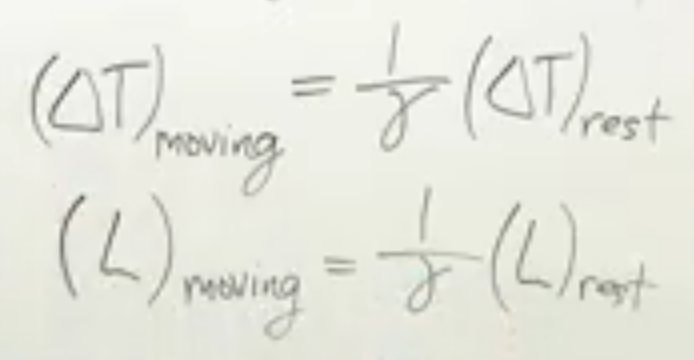 (ΔT)moving = 1/γ (ΔT)rest
(L)moving = 1/γ (L)rest